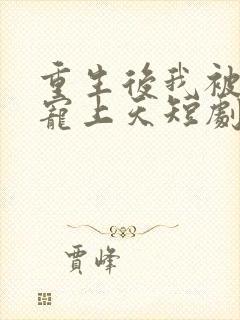 重生後我被
寵上天短劇
賈峰